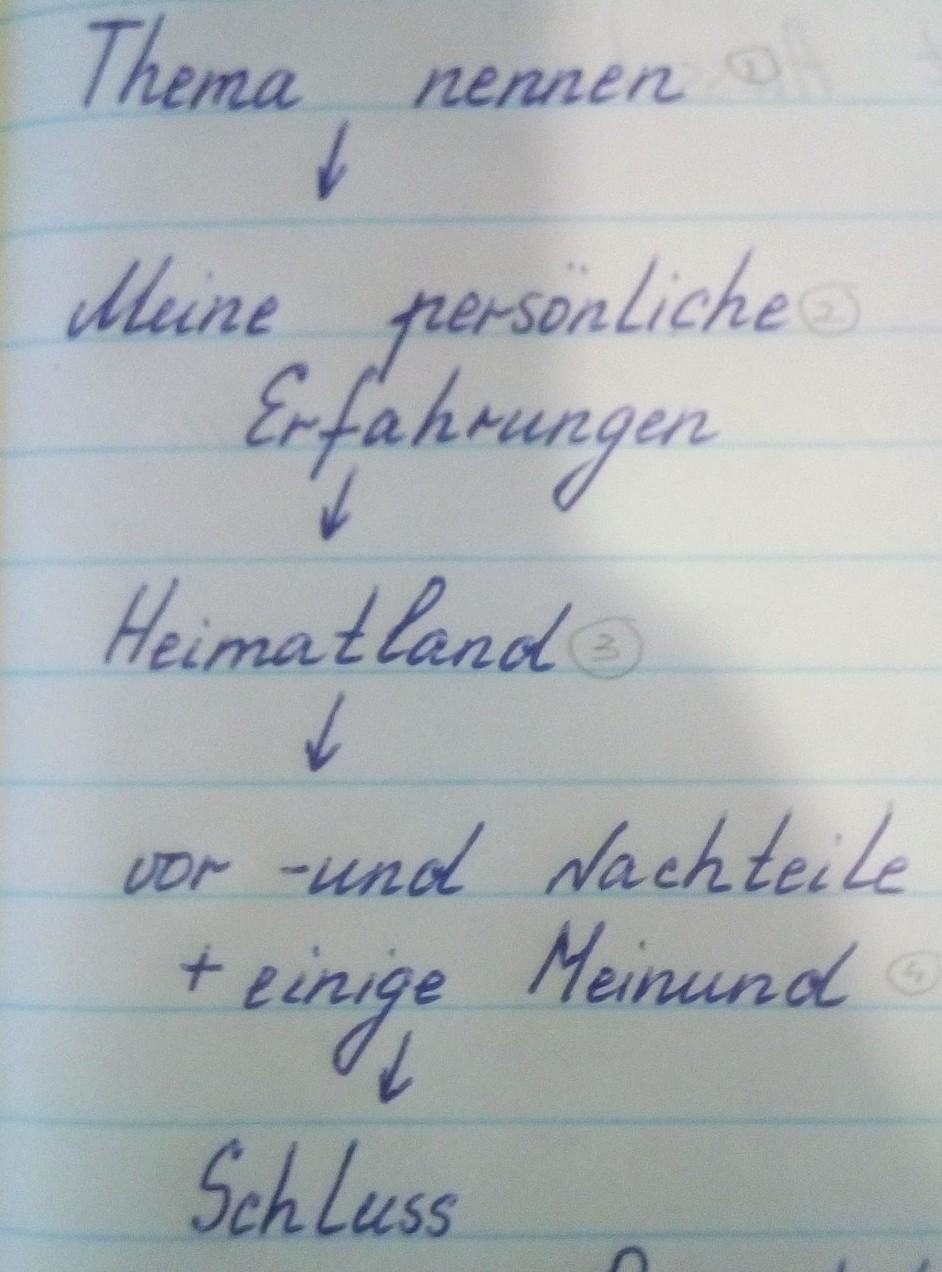 Thema nennen ①
↓
Meine persönliche ②
Erfahrungen
↓
Heimatland ③
↓
vor -und Nachteile
+ einige Meinund ④
↓
Schluss